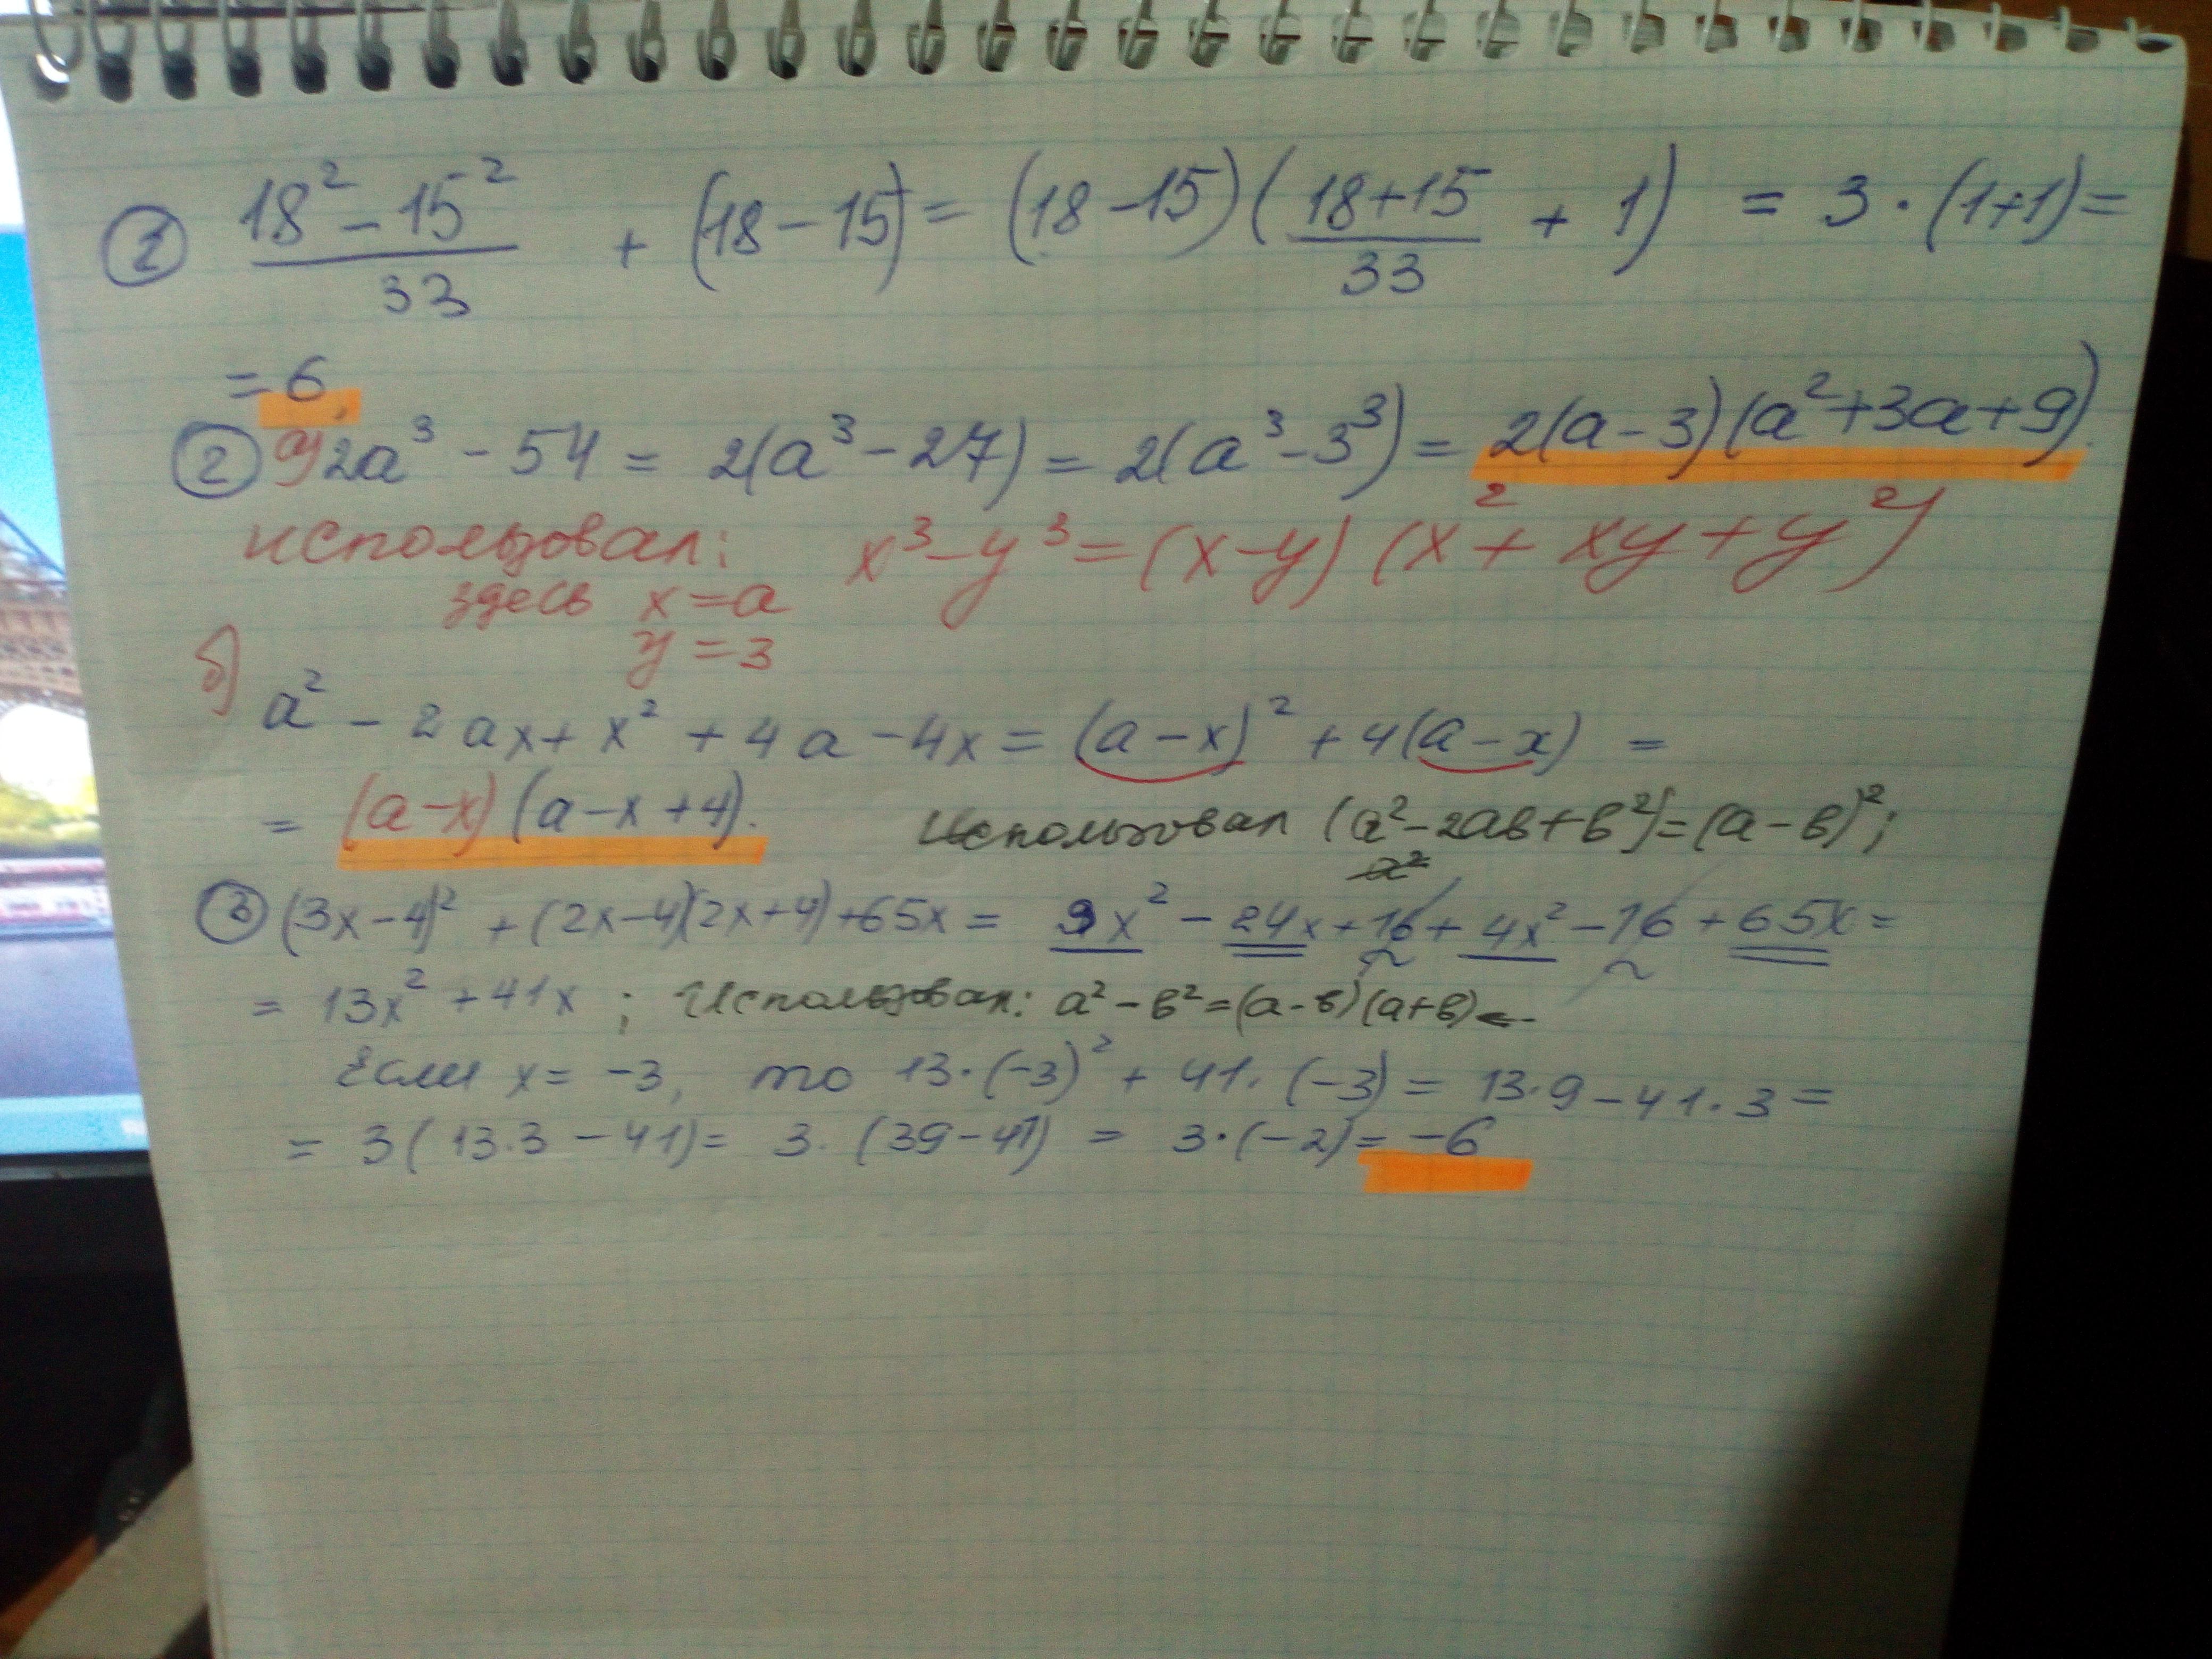 ① (18² - 15²)/33 + (18 - 15) = (18 - 15)((18+15)/33 + 1) = 3 · (1+1) =
= 6.
② а) 2a³ - 54 = 2(a³ - 27) = 2(a³ - 3³) = 2(a - 3)(a² + 3a + 9).
использовал: x³ - y³ = (x - y)(x² + xy + y²)
здесь x = a
y = 3
б)
a² - 2ax + x² + 4a - 4x = (a - x)² + 4(a - x) =
= (a - x)(a - x + 4). Использовал (a² - 2ab + b²) = (a - b)²;
a²
③ (3x - 4)² + (2x - 4)(2x + 4) + 65x = 9x² - 24x + 16 + 4x² - 16 + 65x =
= 13x² + 41x ; Использовал: a² - b² = (a - b)(a + b) ←
Если x = -3, то 13 · (-3)² + 41 · (-3) = 13 · 9 - 41 · 3 =
= 3(13 · 3 - 41) = 3 · (39 - 41) = 3 · (-2) = -6